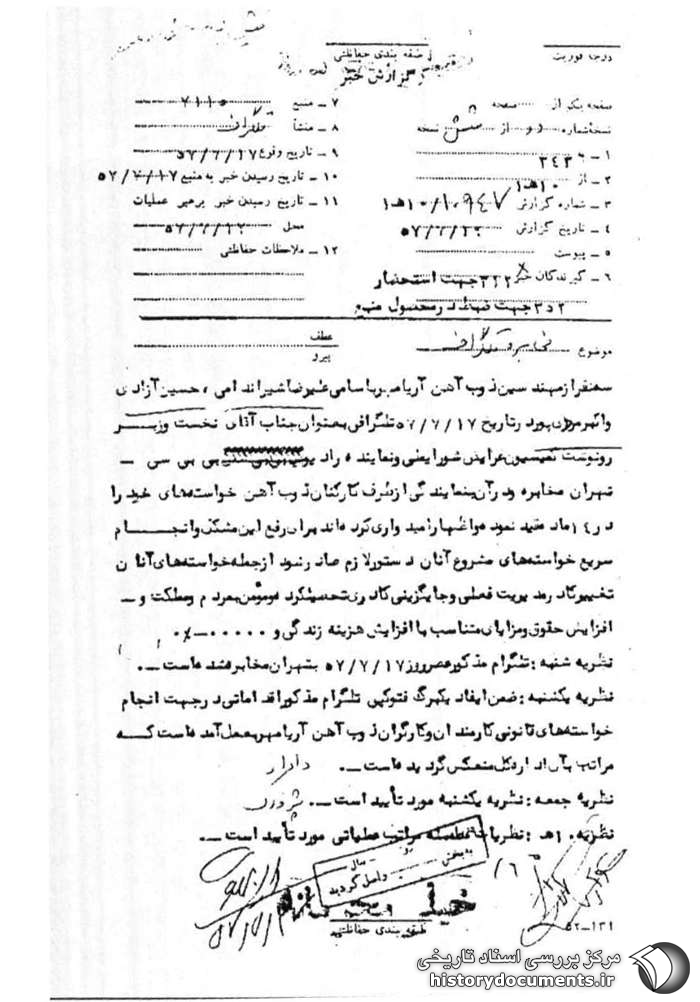 درجه فوریت
طبقه بندی حفاظتی
گزارش خبر
صفحه یکم از صفحه
نسخه شماره دو از شش نسخه
۱ ـ به ۳۴۳
۲ ـ از ۱۰هـ۱
۳ ـ شماره گزارش ۱۰۹۴۷/۱۰هـ۱
۴ ـ تاریخ گزارش ۵۷/۷/۲۲
۵ ـ پیوست
۶ ـ گیرندگان خبر ۳۲۲جهت استحضار
۳۵۲جهت ضبط در محصول منبع
۷ ـ منبع ۷۱۱۰
۸ ـ منشأ تلگراف
۹ ـ تاریخ وقوع ۵۷/۷/۱۷
۱۰ ـ تاریخ رسیدن خبر به منبع ۵۷/۷/۱۷
۱۱ ـ تاریخ رسیدن خبر برهبر عملیات
محل ۵۷/۷/۲۲
۱۲ ـ ملاحظات حفاظتی
موضوع مخابره تلگراف
عطف
پیرو
سه نفر از مهندسین ذوب آهن آریامهر باسامی علیرضا شیراندامی ، حسین آزادی
واکبر در تاریخ ۵۷/۷/۱۷ تلگرافی بعنوان جناب آقای نخست وزیر
رونوشت کمیسیون عرایض شورایملی و نماینده رادیو بی بی سی ـ
تهران مخابره و در آن بنمایندگی از طرف کارکنان ذوب آهن خواسته‌های خود را
در ۱۴ ماده قید نموده و اظهار امیدواری کرده‌اند برای رفع این مشکل و انجام
سریع خواسته‌های مشروع آنان دستور لازم صادر شود از جمله خواسته‌های آنان
تغییر کادر مدیریت فعلی و جایگزینی کادری تحصیلکرده و مؤمن بمردم و مملکت و ـ
افزایش حقوق و مزایای متناسب با افزایش هزینه زندگی و ۰۰۰۰۰
نظریه شنبه : تلگرام مذکور عصر روز ۵۷/۷/۱۷ بتهران مخابره شده است ـ.
نظریه یکشنبه : ضمن ایفاد یکبرگ فتوکپی تلگرام مذکور اقداماتی در جهت انجام
خواسته‌های قانونی کارمندان و کارگران ذوب آهن آریامهر بعمل آمده است که
مراتب بآن اداره کل منعکس گردیده است ـ. دادار
نظریه جمعه : نظریه یکشنبه مورد تأیید است ـ.
نظریه ۱۰هـ : نظریات سلسله مراتب عملیاتی مورد تأیید است ـ.
به بخش
واصل گردید
خیلی محرمانه
طبقه بندی حفاظتی
۵۲-۱۳۱
مرکز بررسی اسناد تاریخی
historydocuments.ir